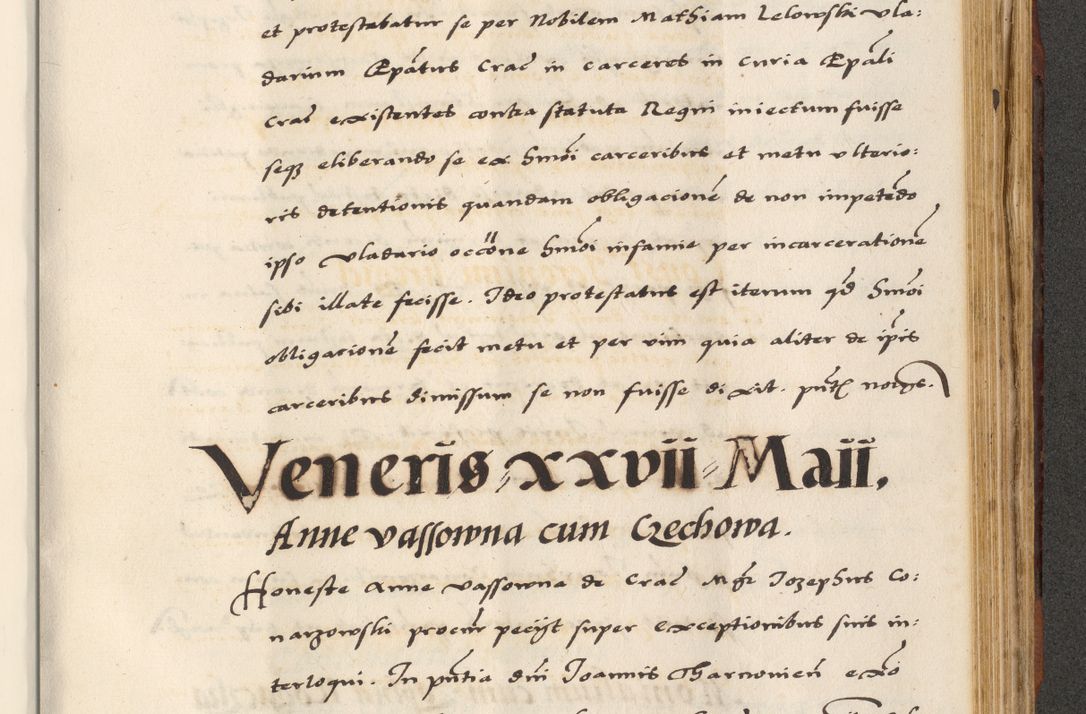 et protestabatur se per Nobilem Mathiam Lelowski vla:
darium Epātus Crac̄ in carceres in curia Epāli
Crac̄ existentes contra statuta Regni iniectum fuisse
seqꝫ eliberando se ex hmōi carceribus et metu vlterio:
ris detentionis quandam obligacionē de non impetēdo
ipso vladario occōne hmōi infamie per incarcerationē
sibi illate fecisse. Ideo protestatus est iterum qd̄ hmōi
obligacionē fecit metu et per vim quia aliter de ip̄is
carceribus dimissum se non fuisse dixit.
Veneris xxvii Maii.
Anne vassowna cum Czechowa.
Honeste Anne vassowne de Crac̄ Mgr̄ Iozephus Co:
narzowski procur̄ pecijt super exceptionibus suis in:
terloqui. In pn̄tia dn̄i Ioannis Tharnowien̄